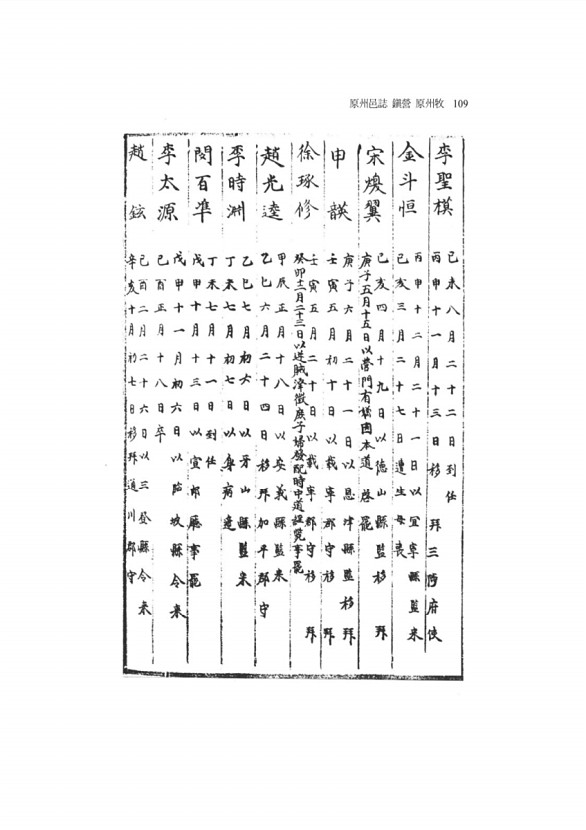 原州邑誌 鎭營 原州牧 109
李聖模
己未八月二十二日到任
丙申十一月十三日移拜三陟府使
金斗恒
丙申十二月二十一日以宜寧縣監來
己亥三月二十七日遭生母喪
宋煥翼
己亥四月十九日以德山縣監移拜
庚子五月十五日以營門有 因本道啓罷
申韺
庚子六月二十一日以恩津縣監移拜
壬寅五月初十日以載寧郡守移拜
徐琢修
壬寅五月二十日以載寧郡守移拜
癸卯十二月二十三日以 賊 徵庶子婦發配時中道 事罷
趙光逵
甲辰正月十八日以安義縣監來
乙巳六月二十四日移拜加平郡守
李時淵
乙巳七月初六日以牙山縣監來
丁未七月初七日以身病遞
閔百準
丁未七月十一日到任
戊申十月十三日以宣 事罷
李太源
戊申十一月初六日以臨坡縣令來
己酉正月十八日卒
趙鉉
己酉二月二十六日以三登縣令來
辛亥十月初七日移拜通川郡守